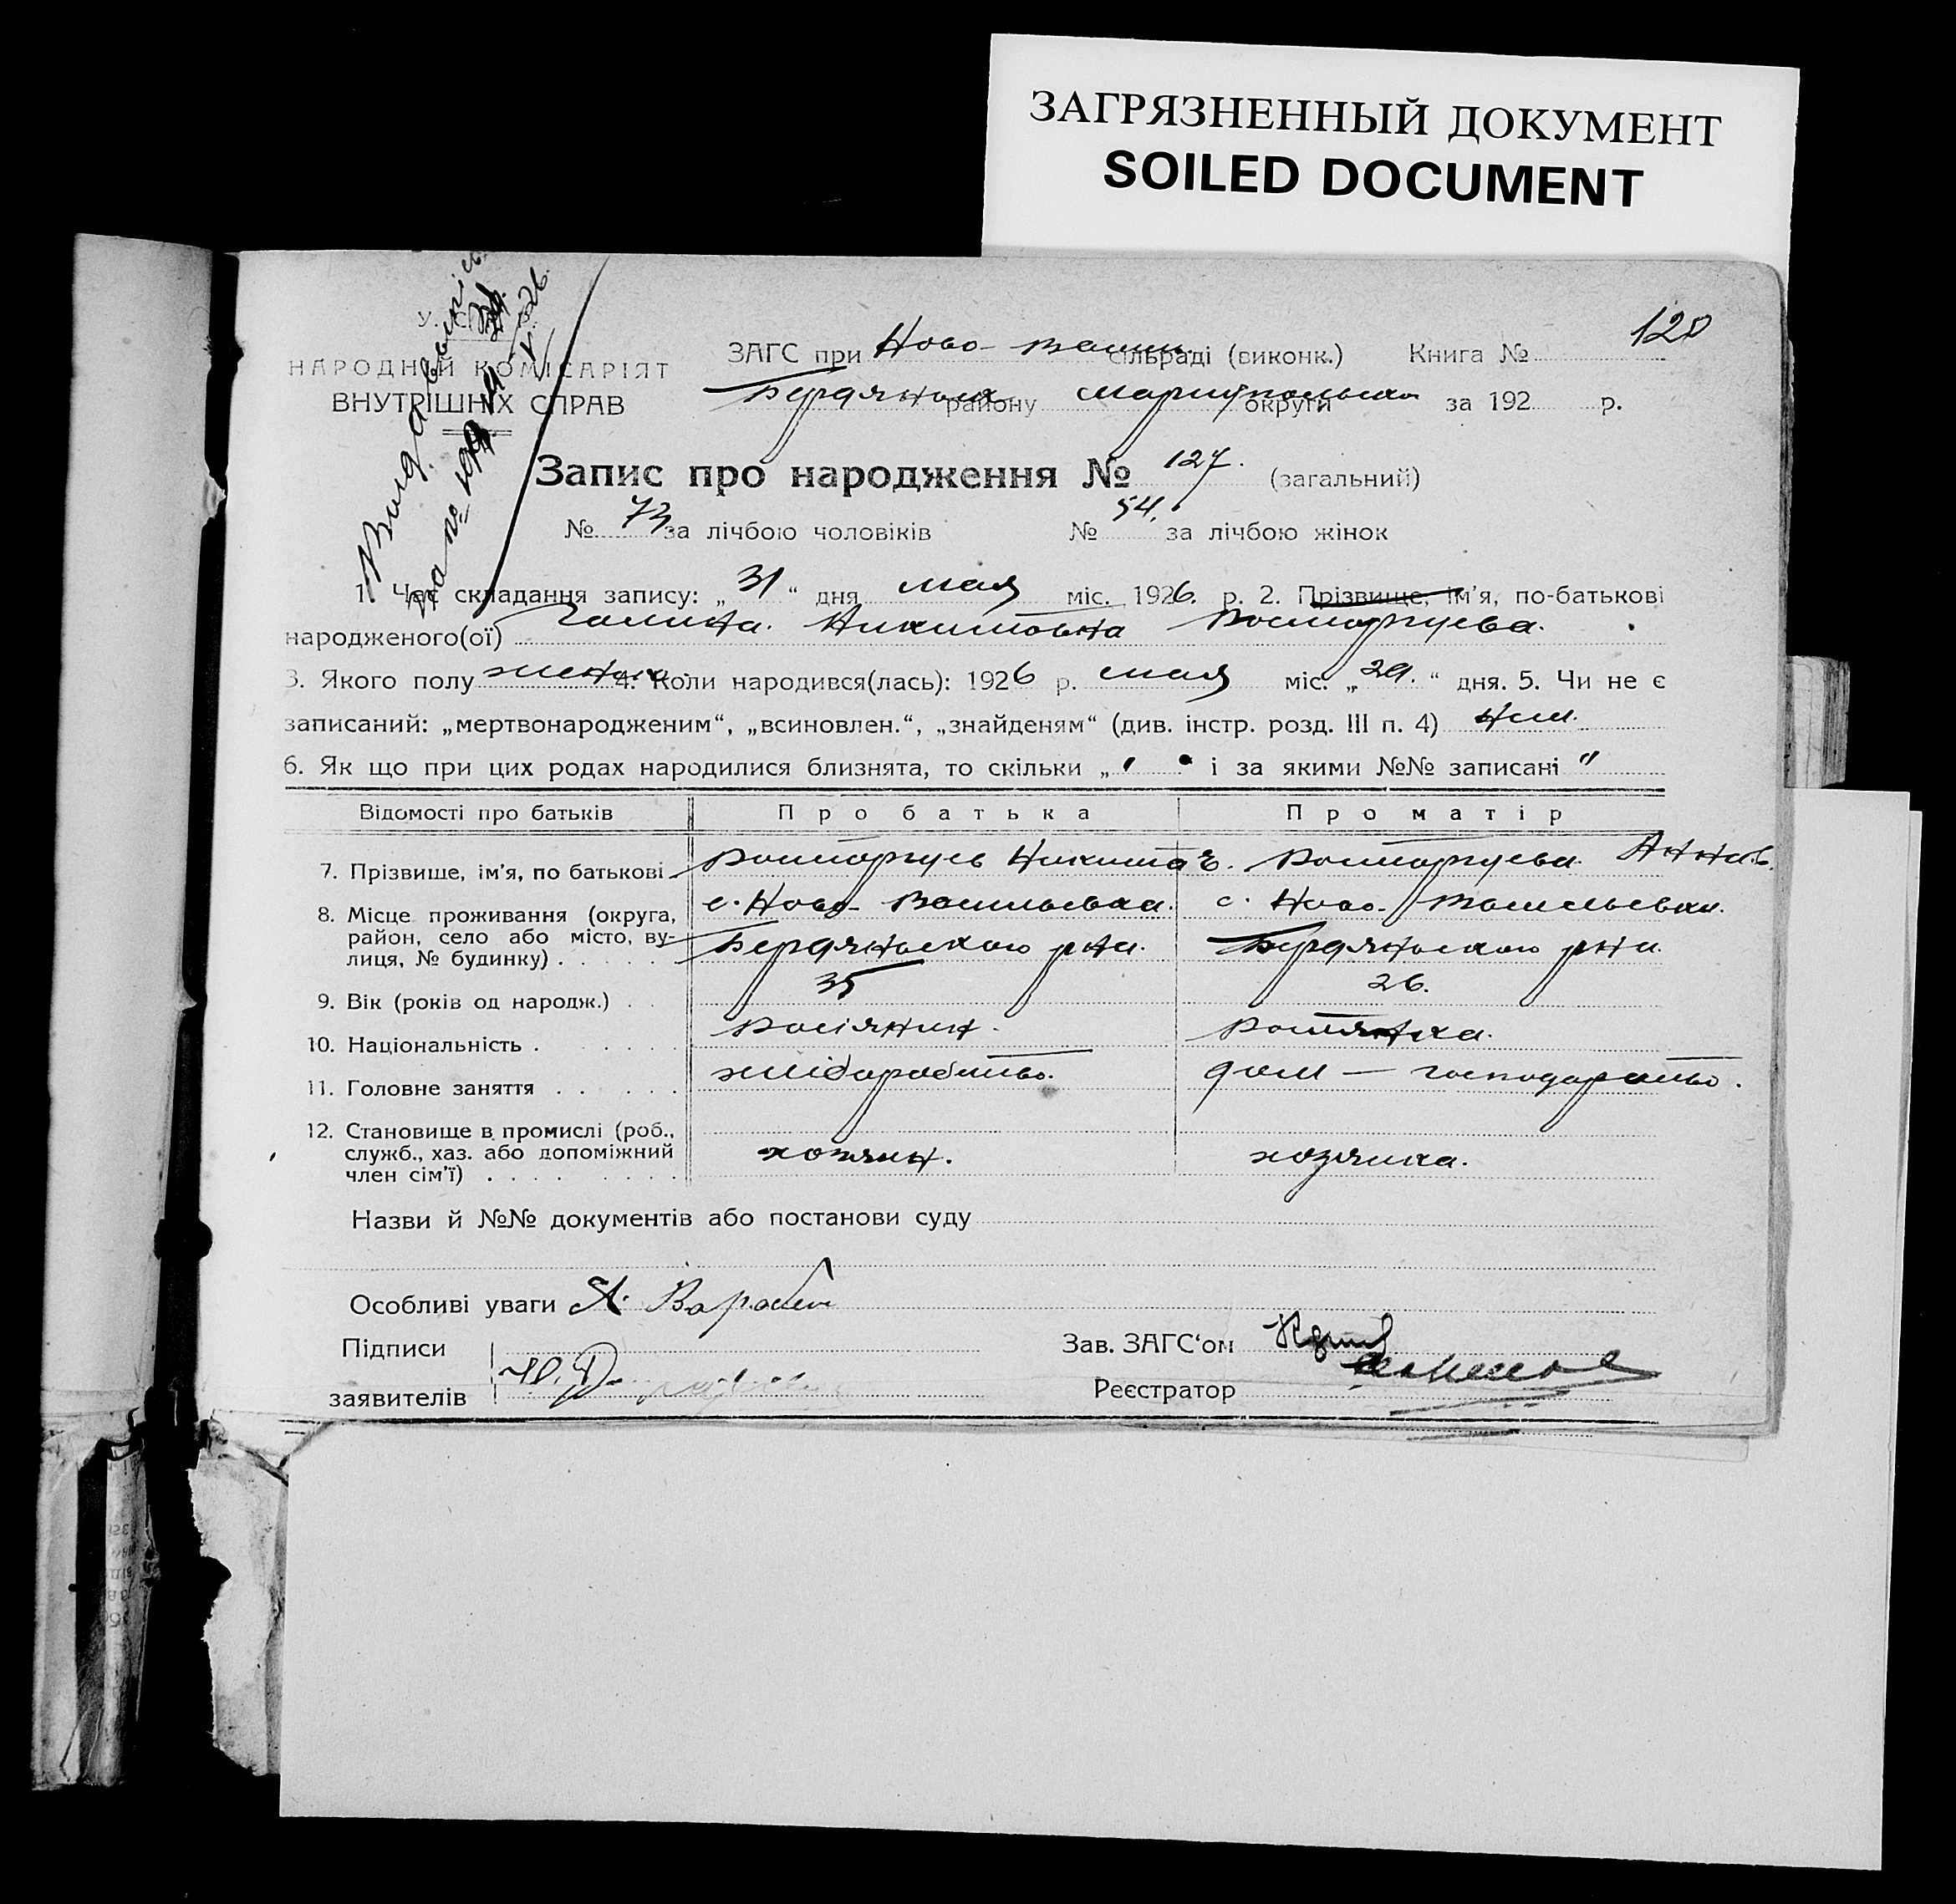 ЗАГРЯЗНЕННЫЙ ДОКУМЕНТ
SOILED DOCUMENT
120
У.
НАРОДНІЙ КОМІСАРІЯТ
ВНУТРІШНІХ СПРАВ
ЗАГС при Ново- сільраді (виконк.) Книга №
району округи за 192 р.
Запис про народження № 127. (загальний)
№ 73 за лічбою чоловіків № 54. за лічбою жінок
1. Час складання запису: „ 31 “ дня мая міс. 1926. р. 2. Прізвище, ім'я, по-батькові
народженого(ої) Галина. Никитовна Расторгуева.
3. Якого полу 4. Коли народився(лась): 1926 р. мая міс. „ 29. “ дня. 5. Чи не є
записаний: „мертвонародженим“, „всиновлен.“, „знайденям“ (див. інстр. розд. III п. 4)
6. Як що при цих родах народилися близнята, то скільки „ “ і за якими №№ записані "
Відомості про батьків Про батька Про матір
7. Прізвише, ім'я, по батькові Расторгуев Никита Расторгуева Анна
8. Місце проживання (округа, с. Ново- Васильевка. с. Ново- Васильевка.
район, село або місто, ву- Бердянського р-на. Бердянського р-на.
лиця, № будинку) . . . . .
9. Вік (років од народж.) . . 35 26.
10. Національність . . . . . Росіянин. Росіянка.
11. Головне заняття . . . . . хліборобство. дом — господарство.
12. Становище в промислі (роб.,
служб., хаз. або допоміжний хозяин. хозяйка.
член сім'ї) . . . . . . . .
Назви й №№ документів або постанови суду
Особливі уваги
Підписи Зав. ЗАГС‘ом
заявителів Реєстратор